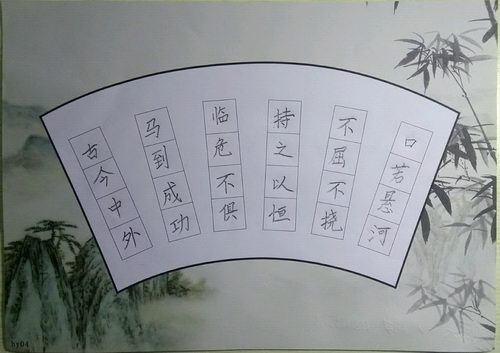 口若悬河
不屈不挠
持之以恒
临危不俱
马到成功
古今中外
hy04